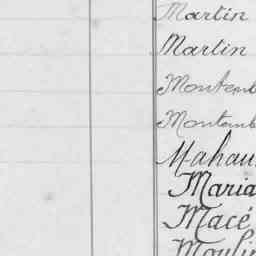 Martin
Martin
Montemb
Montemb
Mahau
Maria
Macé
Moulin